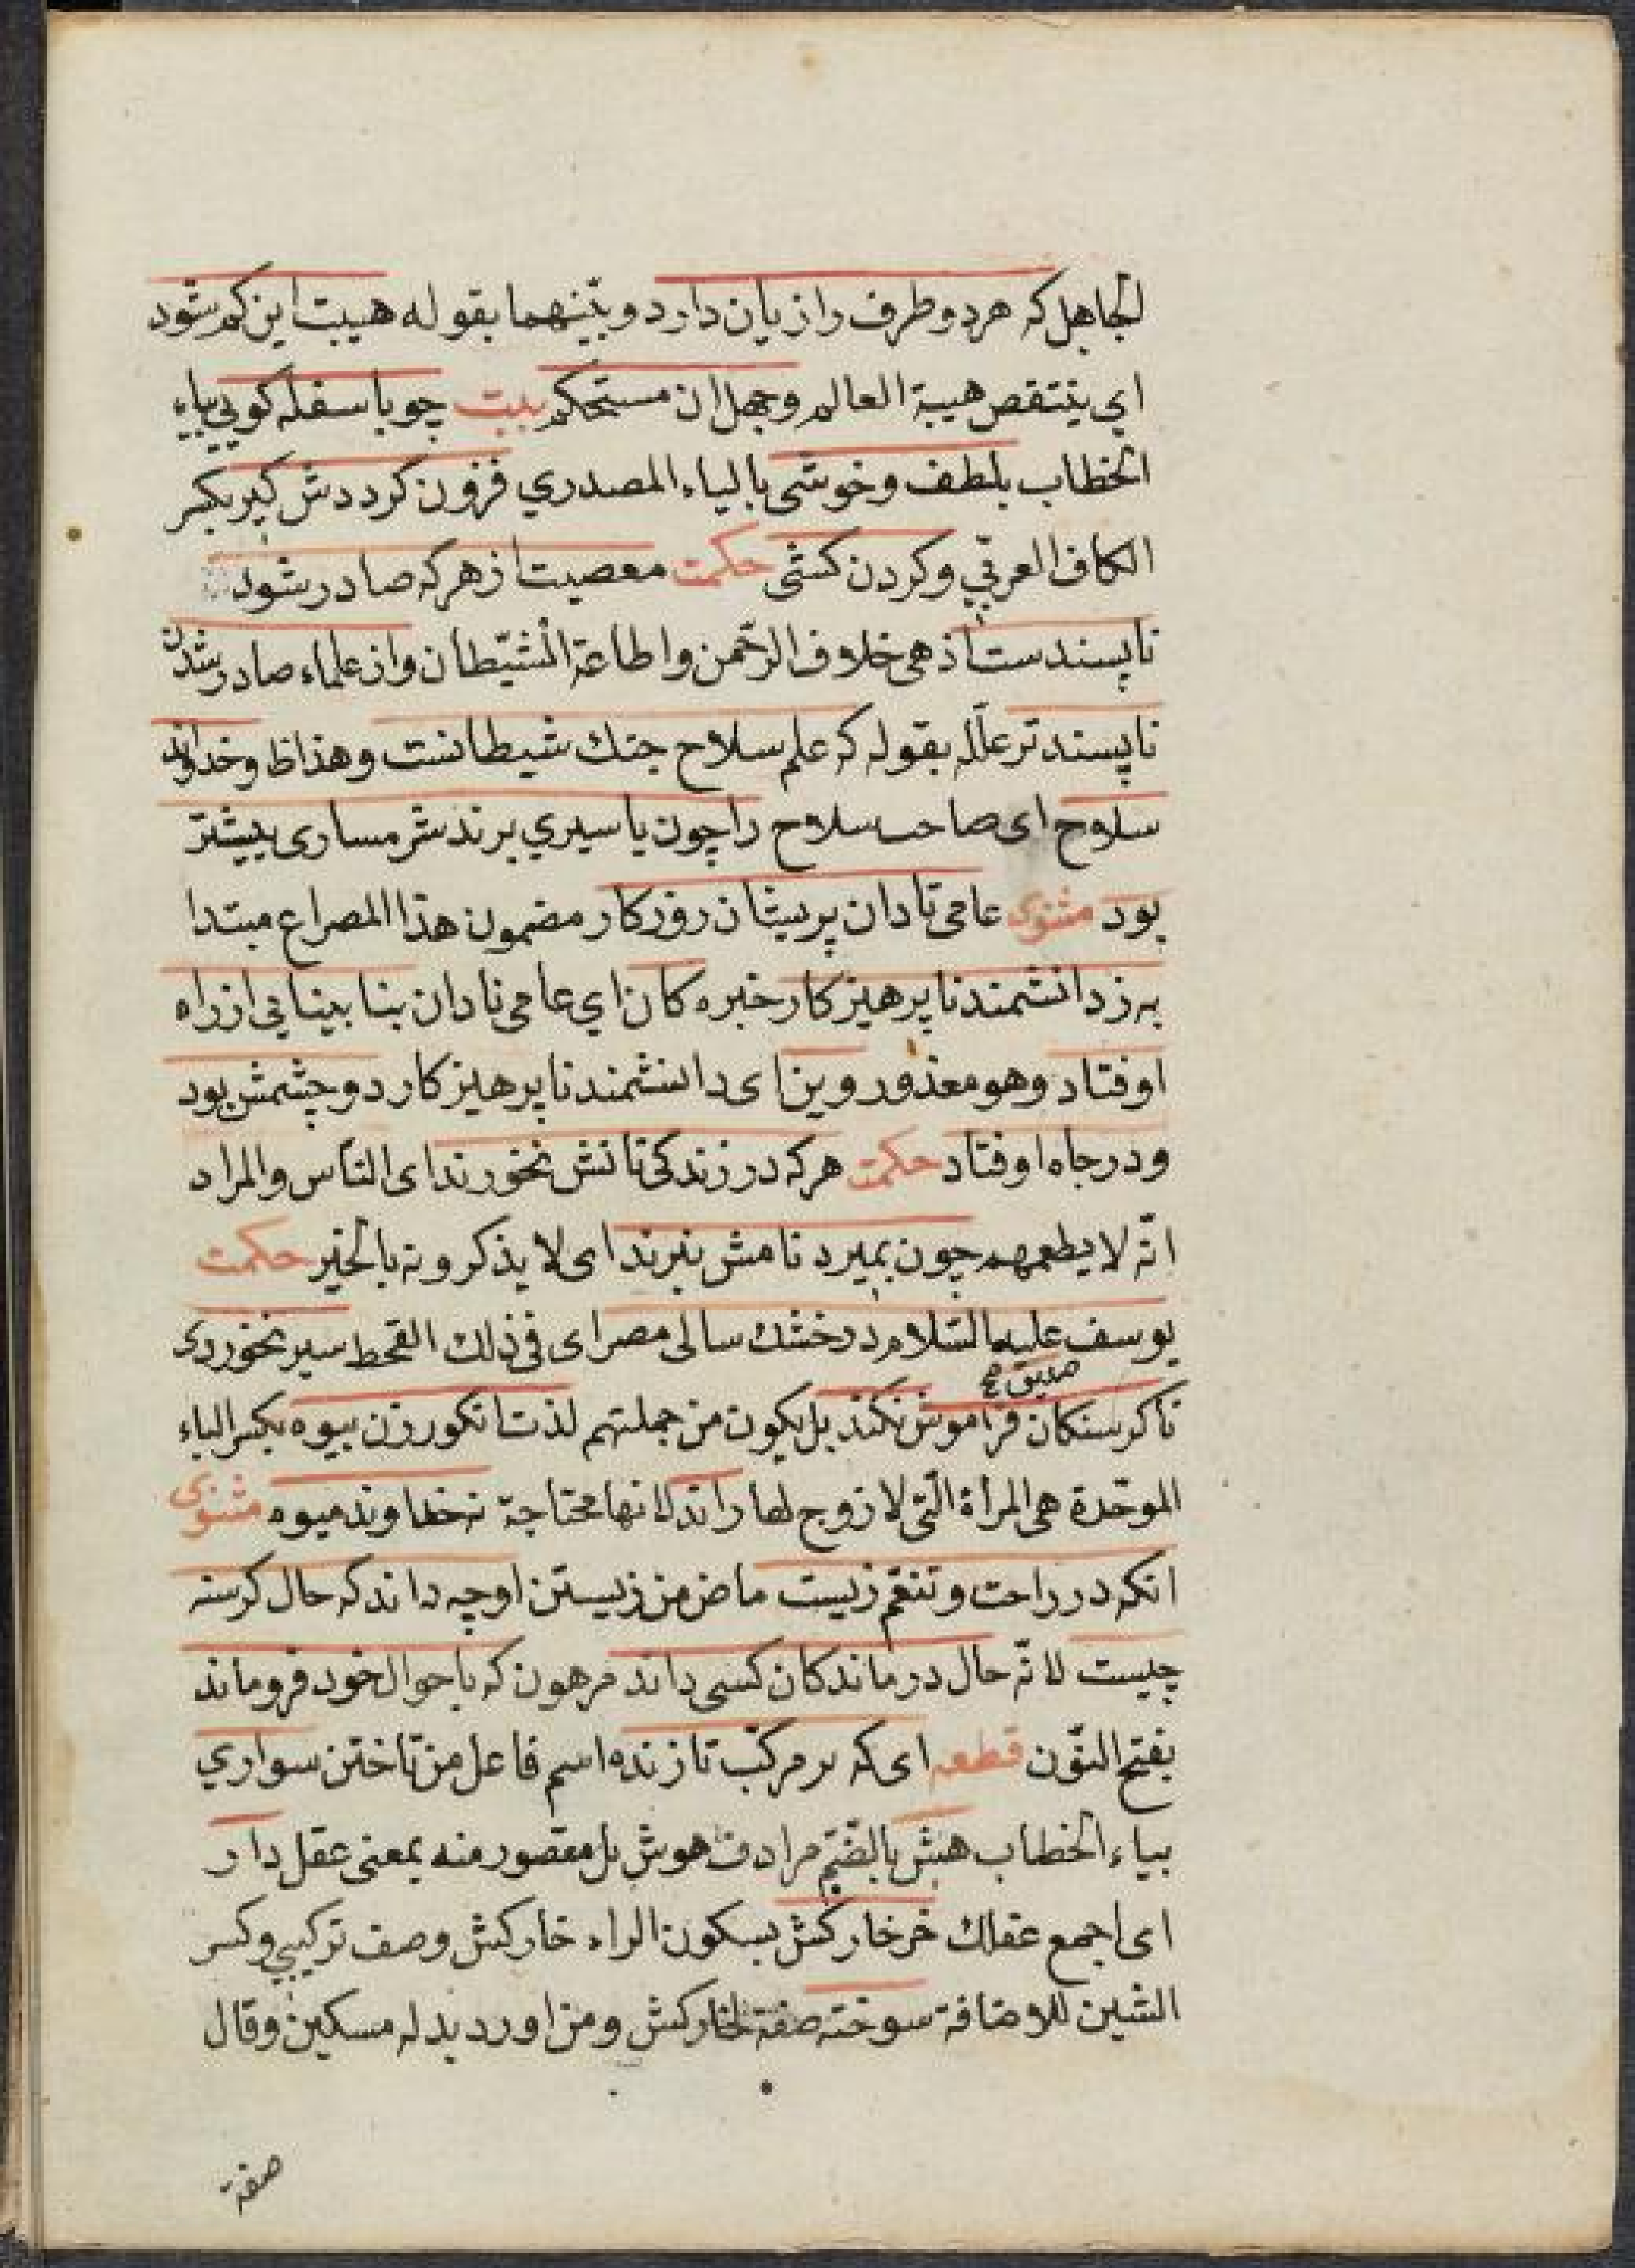 لجاهل که هر دو طرف را زیان دارد وبیّنهما بقوله هیبت این کم شود
ای ینتقص هیبة العالم وجهل ان مستحکم بیت چو با سفله کویی بیاء
الخطاب بلطف وخوشی بالیاء المصدري فزون کرددش کبر بکسر
الکاف العربی وکردن کشی حکمت معصیت از هر که صادر شود
ناپسندست اذ هی خلاف الرّحمن واطاعة الشّیطان واز علماء صادر شدن
ناپسندتر علّله بقوله که علم سلاح جنك شیطانست وهذا ظ وخداوند
سلاح ای صاحب سلاح را چون باسیري برند شرمساری بیشتر
بود مثنوی عامی نادان پریشان روزکار مضمون هذا المصراع مبتدا
به ز دانشمند ناپرهیزکار خبره کان ای عامی نادان بنابینایی از راه
اوفتاد وهو معذور وین ای دانشمند ناپرهیزکار دو چشمش بود
ودر چاه اوفتاد حکمت هر که در زندکی نانش نخورند ای النّاس والمراد
انّه لا یطعمهم چون بمیرد نامش نبرند ای لا یذکرونه بالخیر حکمت
یوسف علیه السّلام در خشك سالی مصر ای فی ذلك القحط سیر نخوردی
صدیق صح
تا کرسنکان فراموش نکند بل یکون من جملتهم لذت انکور زن بیوه بکسر الباء
الموحّدة هی المرأة الّتی لا زوج لها داند لانها محتاجة نه خداوند میوه مثنوی
انکه در راحت وتنعّم زیست ماض من زیستن او چه داند که حال کرسنه
چیست لانّه حال درماندکان کسی داند مرهون که باحوال خود فروماند
بفتح النّون قطعه ای که بر مرکب تازنده اسم فاعل من تاختن سواري
بیاء الخطاب هش بالضّم مرادف هوش بل مقصور منه بمعنی عقل دار
ای اجمع عقلك خر خارکش بسکون الراء خارکش وصف ترکیبی وکسر
الشین للاضافة سوخته صفة لخارکش ومن اورد بدله مسکین وقال
صفة